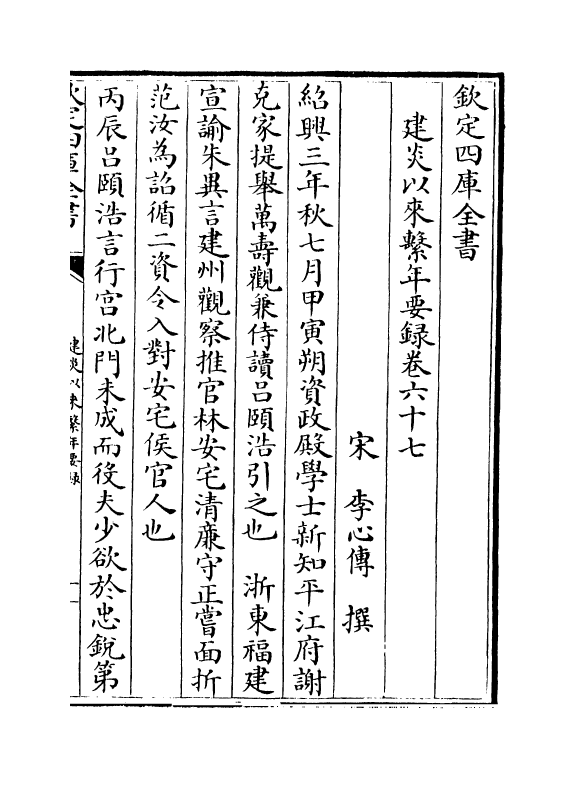 欽定四庫全書
建炎以來繫年要錄卷六十七
宋　李心傳　撰
紹興三年秋七月甲寅朔資政殿學士新知平江府謝
克家提舉萬壽觀兼侍讀吕頤浩引之也　浙東福建
宣諭朱異言建州觀察推官林安宅清廉守正嘗面折
范汝為詔循二資令入對安宅侯官人也
丙辰吕頤浩言行宫北門未成而役夫少欲於忠銳第
欽定四庫全書
建炎以來繫年要錄
一